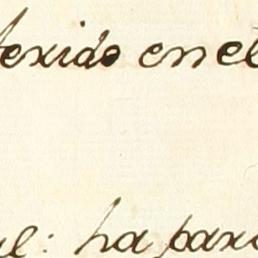 texido en el
al: ha para